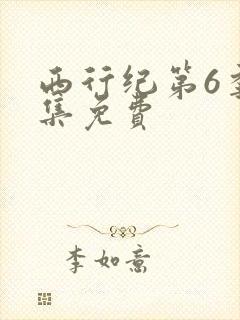 西行纪第6季
集免费
李如意